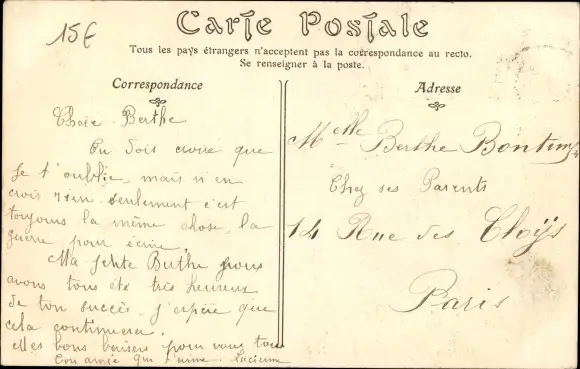 15€
Carte Postale
Tous les pays étrangers n'acceptent pas la correspondance au recto.
Se renseigner à la poste.
Correspondance
Adresse
Chère Berthe
Tu dois croire que
Je t'oublie mais n'en
crois rien seulement c'est
toujours la même chose la
guerre pour écrire.
Ma petite Berthe nous
avons tous été très heureux
de ton succès. J'espère que
cela continuera.
Mes bons baisers pour vous tous
Ton amie qui t'aime Lucienne
Melle Berthe
Chez ses Parents
14 Rue des Cloÿs
Paris